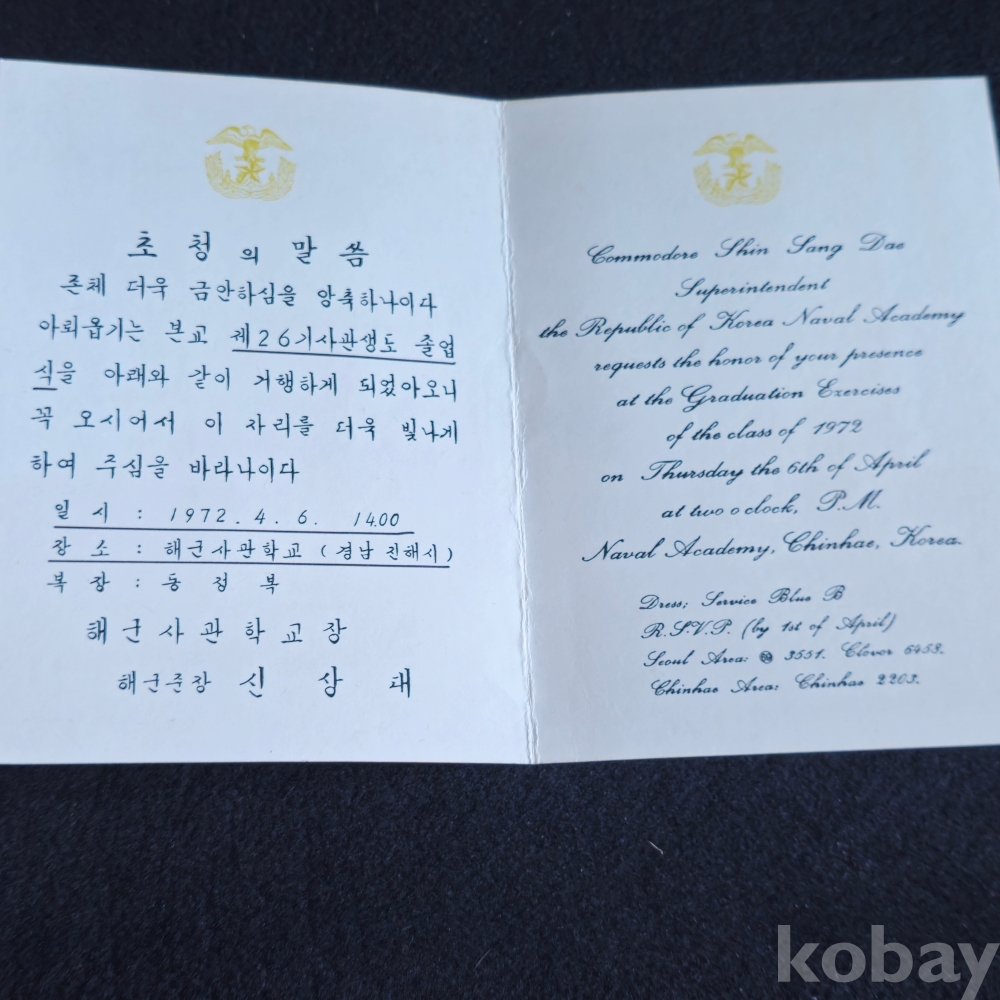 초청의 말씀
존체 더욱 금안하심을 앙축하나이다
아뢰옵기는 본교 제26기사관생도 졸업
식을 아래와 같이 거행하게 되었아오니
꼭 오시어서 이 자리를 더욱 빛나게
하여 주심을 바라나이다
일시 : 1972. 4. 6. 1400
장소 : 해군사관학교 (경남 진해시)
복장 : 동정복
해군사관학교장
해군준장 신상대
Commodore Shin Sang Dae
Superintendent
the Republic of Korea Naval Academy
requests the honor of your presence
at the Graduation Exercises
of the class of 1972
on Thursday the 6th of April
at two o clock, P.M.
Naval Academy, Chinhae, Korea.
Dress; Service Blue B
R.S.V.P. (by 1st of April)
Seoul Area: 3551. Clover 6453.
Chinhae Area: Chinhae 2203.
kobay